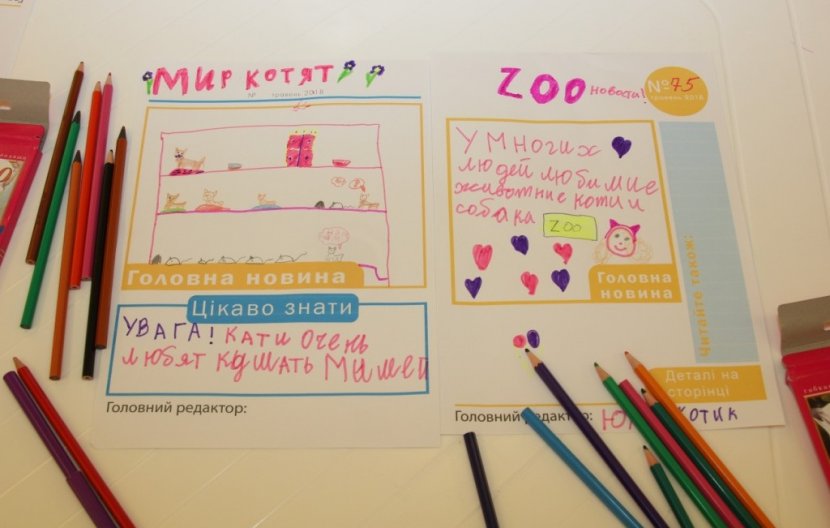 МИР КОТЯТ
№ травень 2018
Головна новина
Цікаво знати
УВАГА! КАТИ ОЧЕНЬ
ЛЮБЯТ КУШАТЬ МИШЕЙ
Головний редактор:
ZOO новости!
№75
травень 2018
У МНОГИХ
ЛЮДЕЙ ЛЮБИМИЕ
ЖИВОТНИЕ КОТИ И
СОБАКА ZOO
Головна новина
Читайте також:
Деталі на
сторінці
Головний редактор: КОТИК